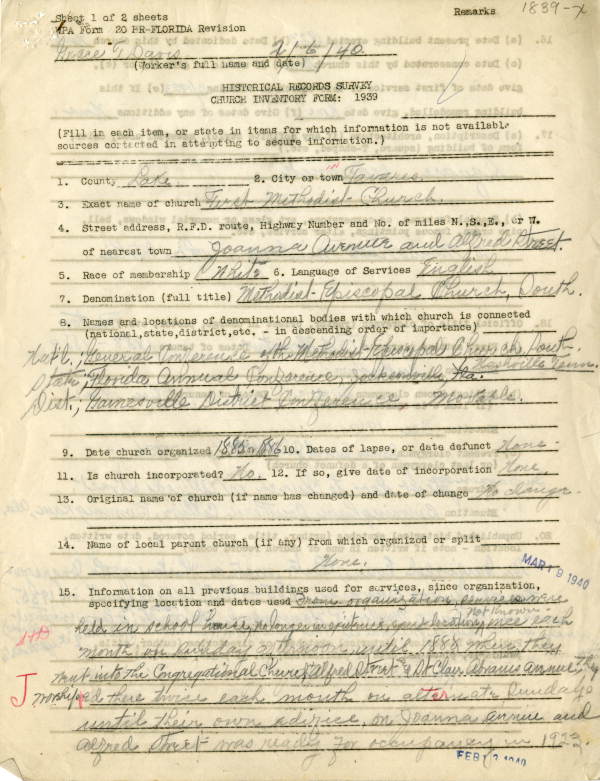 Sheet 1 of 2 sheets
Remarks
1839-X
WPA Form 20 HR-FLORIDA Revision
Davis 2/6/40
(Worker's full name and date)
HISTORICAL RECORDS SURVEY
CHURCH INVENTORY FORM: 1939
(Fill in each item, or state in items for which information is not available
sources contacted in attempting to secure information.)
1. County Lake 2. City or town in Tavares
3. Exact name of church First Methodist Church.
4. Street address, R.F.D. route, Highway Number and No. of miles N.,S.,E., or W.
of nearest town Joanna Avenue and Alfred Street.
5. Race of membership White 6. Language of Services English
7. Denomination (full title) Methodist-Episcopal Church, South.
8. Names and locations of denominational bodies with which church is connected
(national,state,district,etc. - in descending order of importance)
Nat'l.; General Conference of the Methodist-Episcopal Church, South-
Nashville Tenn.
State; Florida Annual Conference, Jacksonville, Fla.
Dist.; Gainesville District Conference,
9. Date church organized 1885 or 1886 10. Dates of lapse, or date defunct None-
11. Is church incorporated? No. 12. If so, give date of incorporation None.
13. Original name of church (if name has changed) and date of change No change-
14. Name of local parent church (if any) from which organized or split
None.
MAR 19 1940
15. Information on all previous buildings used for services, since organization,
specifying location and dates used From organization, services were
held in school house, no longer in existence, exact location not known- once each
month on Sunday afternoon until 1888 when they
went into the Congregational Church Alfred Street & St Clair Abrams Avenue, they
worshiped there twice each month on alternate Sundays
until their own edifice on Joanna Avenue and
Alfred Street was ready for occupancy in 1922.
FEB 12 1940